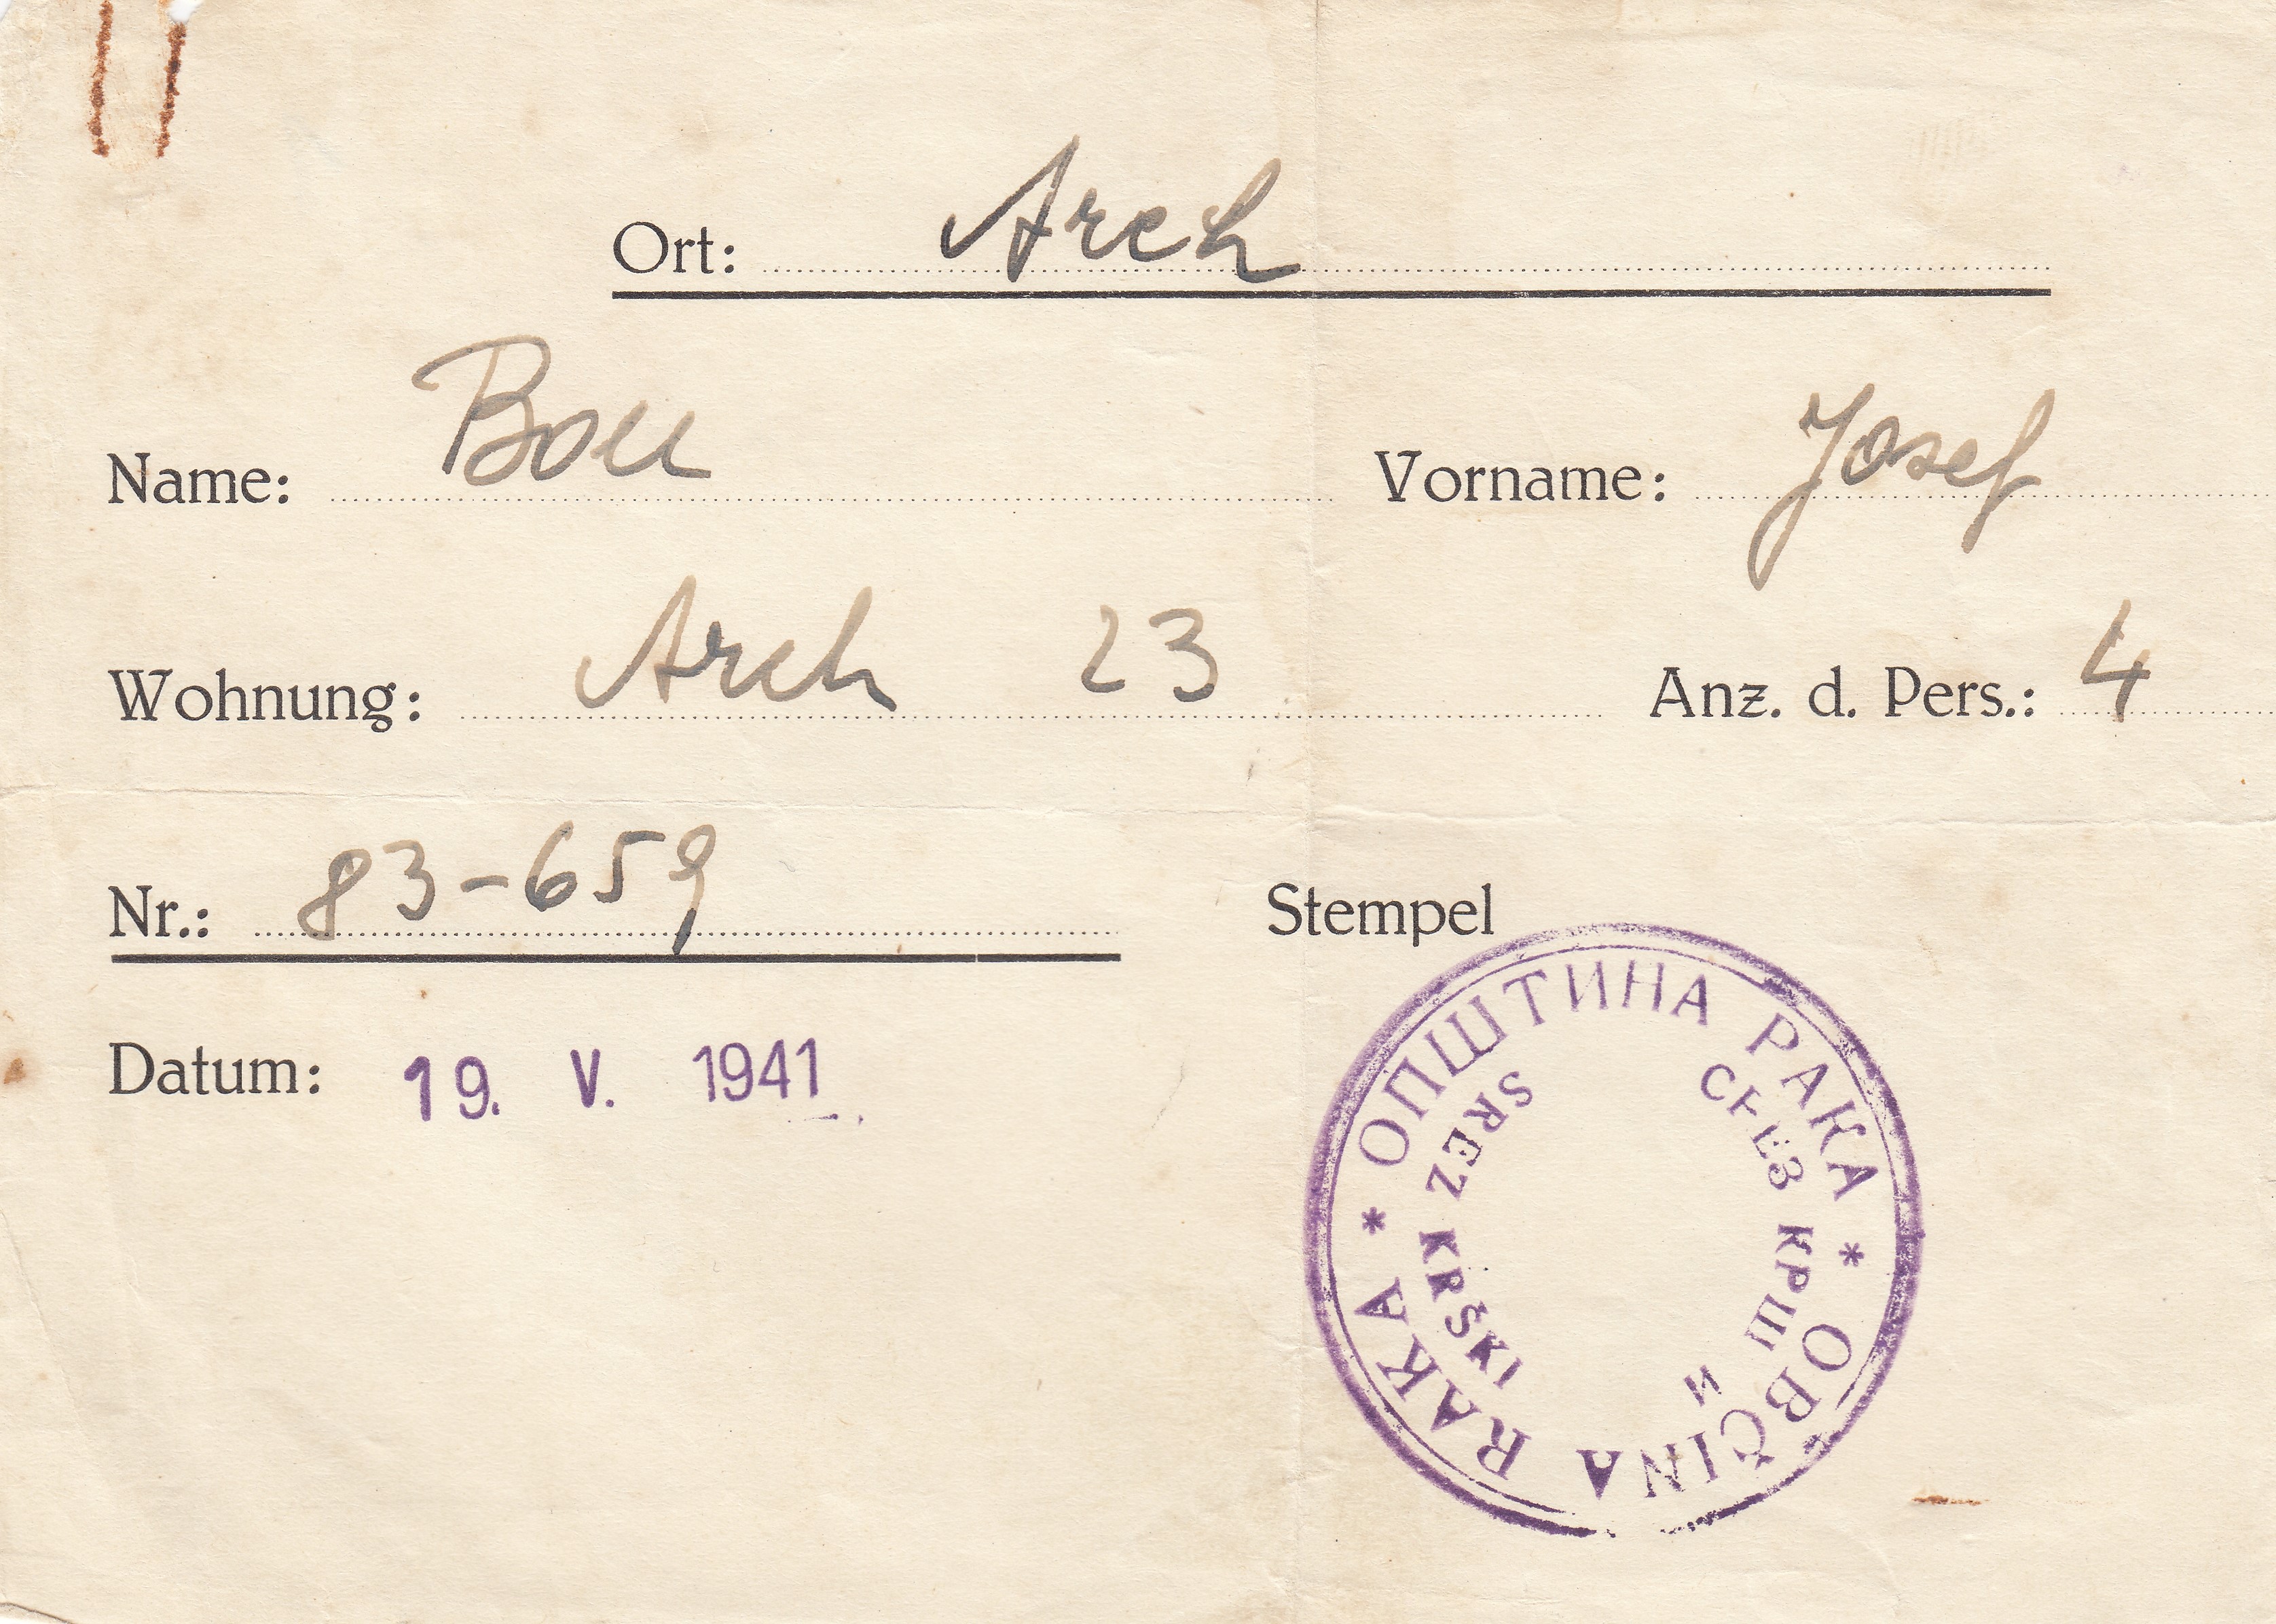 Ort: Arch
Name: Bon Vorname: Josef
Wohnung: Arch 23 Anz. d. Pers.: 4
Nr.: 83-659
Stempel
Datum: 19. V. 1941
* ОПШТИНА РАКА * OBČINA RAKA
СРЕЗ КРШКИ
SREZ KRŠKI